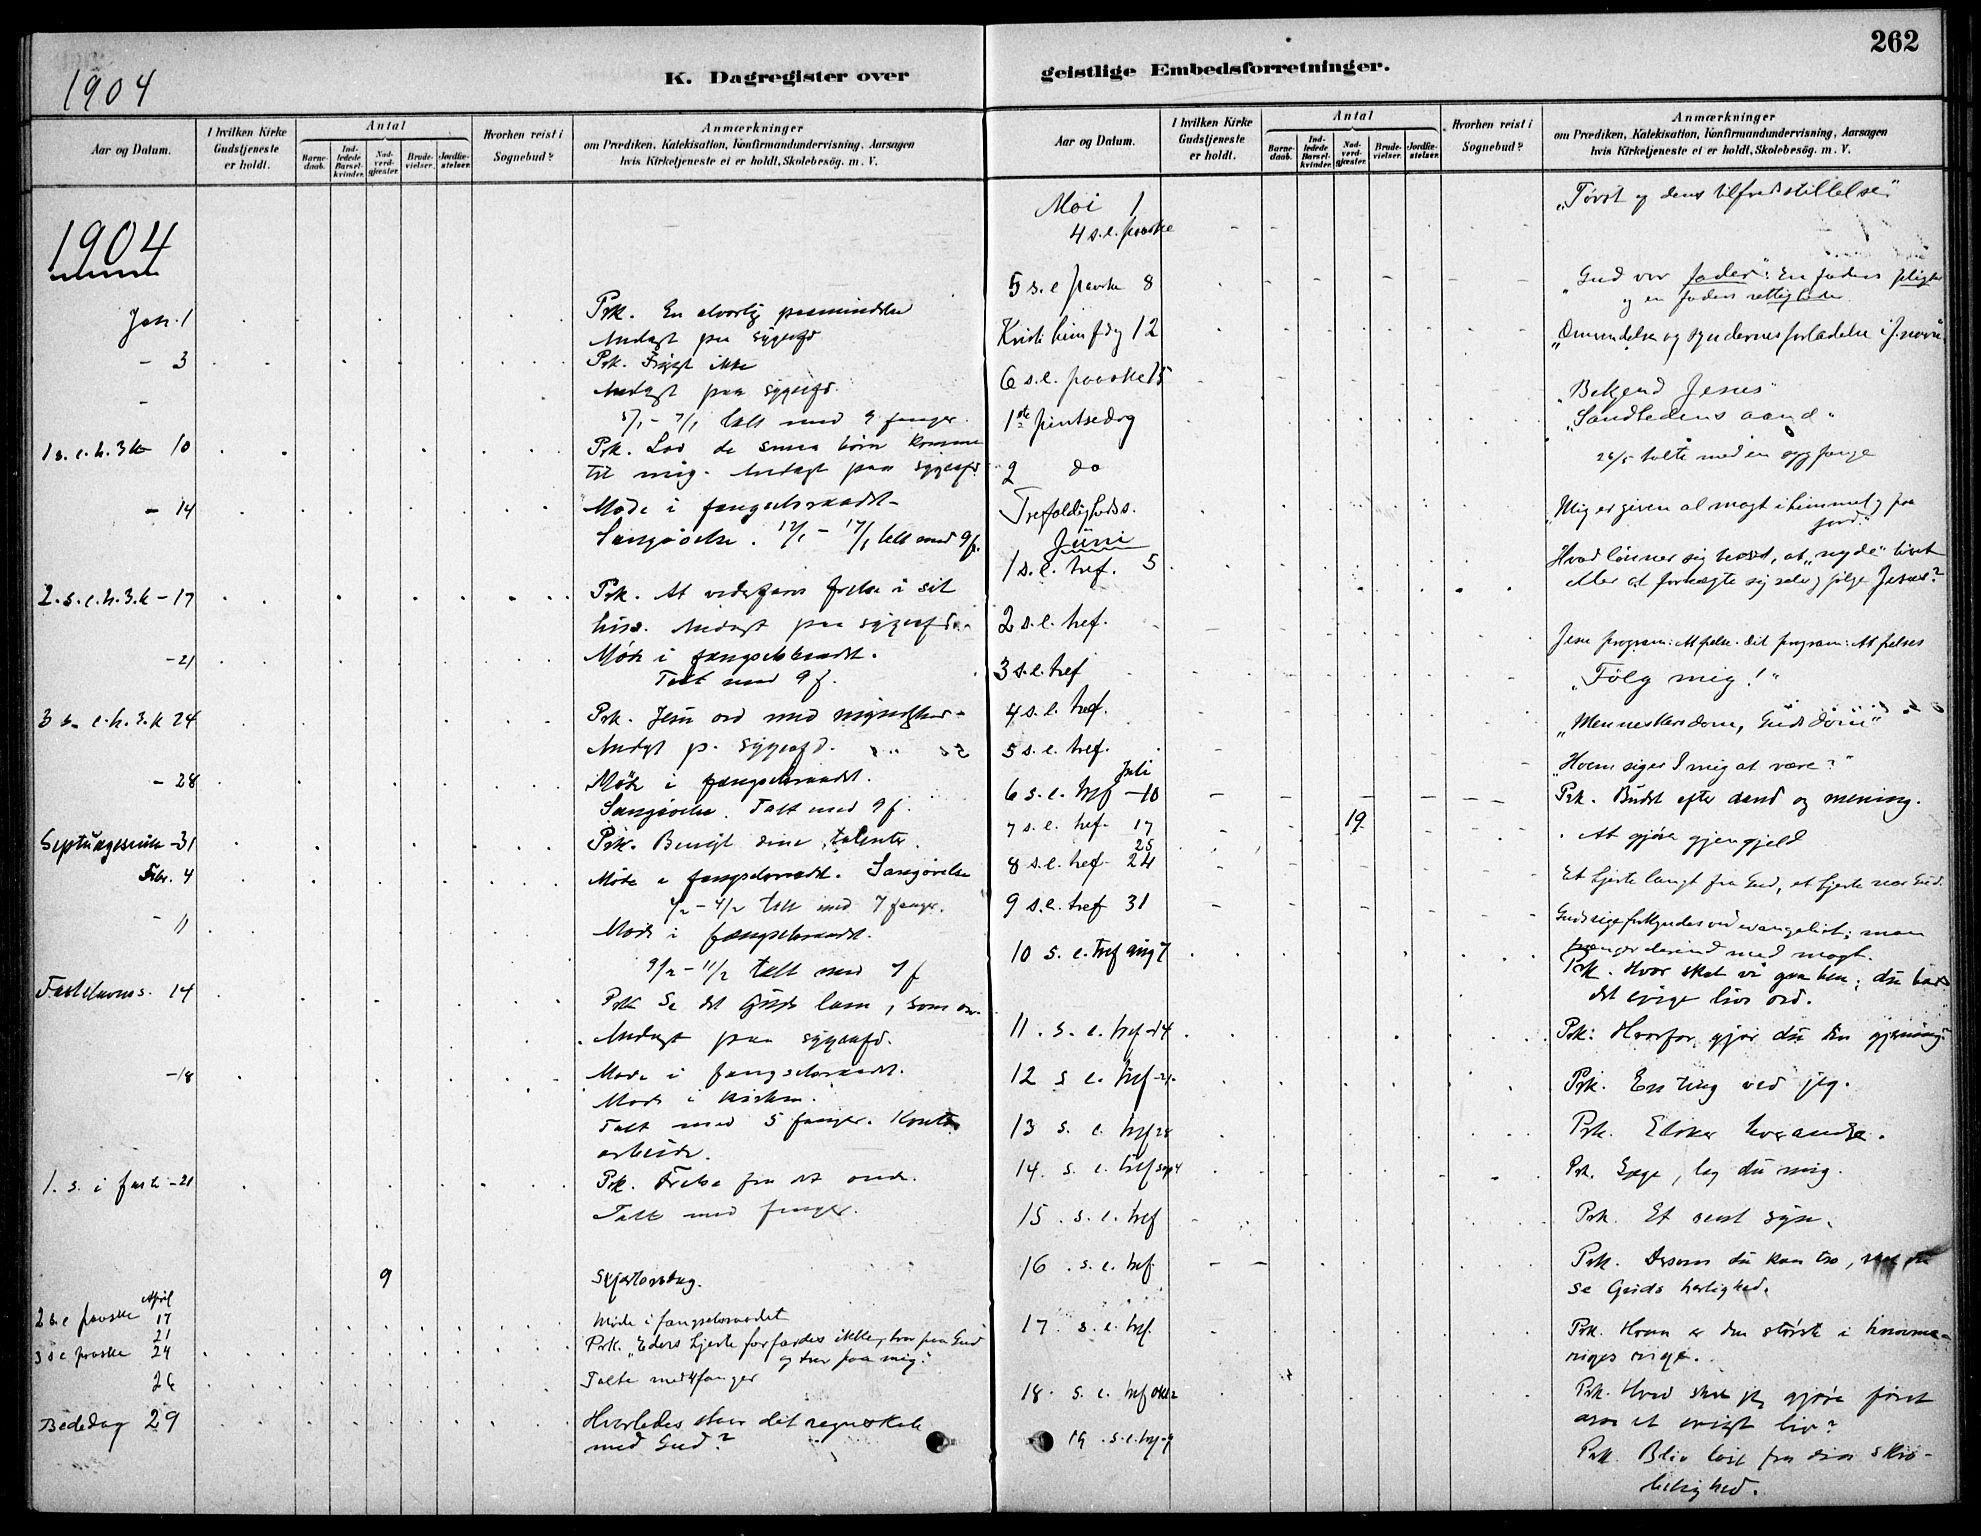 262
1904
K. Dagregister over
geistlige Embedsforretninger.
Aar og Datum.
I hvilken Kirke Gudstjeneste er holdt.
Antal
Barne-daab.
Ind-ledede Barsel-kvinder.
Nad-verd-gjæster.
Brude-vielser.
Jordfæ-stelser.
Hvorhen reist i Sognebud?
Anmærkninger
om Prædiken, Katekisation, Konfirmandundervisning, Aarsagen
hvis Kirketjeneste ei er holdt, Skolebesøg. m. V.
1904
Jan. 1
Prk. En alvorlig paamindelse
Andagt paa sygeafd
- 3
Prk. Frygt ikke
Andagt paa sygeafd.
5/1 - 7/1 talt med 9 fanger.
1 s. e. h. 3 k 10
Prk. Lad de smaa børn komme
til mig. Andagt paa sygeafd
- 14
Møde i fængselsraadet -
Sangøvelse. 12/1 - 17/1 talt med 9 f.
2. s. e. h. 3. k - 17
Prk. At vederfares frelse i sit
hus. Andagt paa sygeafd.
- 21
Møde i fængselsraadet.
Talt med 9 f.
3 s. e. h. 3. k 24
Prk. Jesu ord med myndighed -
Andagt p. sygeafd.
- 28
Møde i fængselsraadet.
Sangøvelse. Talt med 9 f.
Septuagesima - 31
Prk. Benyt dine talenter.
Febr. 4
Møde i fængselsraadet. Sangøvelse
talt med 7 fanger.
- 11
Møde i fængselsraadet.
9/2 - 11/2 talt med 7 f
Fastelavns s. 14
Prk Se det Guds lam, som
Andagt paa sygeafd.
- 18
Møde i fængselsraadet.
Møde i kirken.
Talt med 5 fanger. Kontor
arbeide.
1. s. i faste - 21
Prk. Frelse fra det onde.
Talt med fanger.
9
Skjærtorsdag.
April
2 s e paaske 17
Møde i fængselsraadet
21
3 s e paaske 24
Prk. "Eders hjerte forfærdes ikke, tror paa Gud
og tror paa mig."
26
Talte med 4 fanger
Bededag 29
Hvorledes staar dit regnskab
med Gud?
Aar og Datum.
I hvilken Kirke Gudstjeneste er holdt.
Antal
Barne-daab.
Ind-ledede Barsel-kvinder.
Nad-verd-gjæster.
Brude-vielser.
Jordfæ-stelser.
Hvorhen reist i Sognebud?
Anmærkninger
om Prædiken, Katekisation, Konfirmandundervisning, Aarsagen
hvis Kirketjeneste ei er holdt, Skolebesøg. m. V.
Mai 1
4 s. e. paaske
"Tørst og dens tilfredsstillelse"
5 s. e paaske 8
"Gud vor fader": En faders pligter
og en faders rettigheder
Kristi himfdg 12
"Omvendelse og syndernes forladelse i J. navn"
6 s. e. paaske 15
"Bekjend Jesus"
1ste pintsedag
"Sandhedens aand"
2 do
26/5 talte med en syg fange
Trefoldigheds s.
"Mig er given al magt i himmel og paa
jord."
Juni
1 s. e. tref. 5
Hvad lønner sig bedst, at "nyde" livet
eller at fornegte sig selv og følge Jesus?
2 s. e. tref.
Jesu program: At frelse. dit program: At frelses
3 s. e. tref
"Følg mig!"
4 s. e. tref.
"Menneskers dom, Guds dom"
5 s. e. tref.
"Hvem siger I mig at være?"
Juli
6 s. e. tref - 10
Prk. Budet efter aand og mening.
7 s. e. tref. 17
19
At gjøre gjengjeld
25
8 s. e. tref. 24
Et hjerte langt fra Gud, et hjerte nær Gud.
9 s. e. tref 31
Guds rige forkyndes ved evangeliet; man
trænger derind med magt.
10 s. e. tref aug 7
Prk. Hvor skal vi gaa hen; du har
det evige livs ord.
11. s. e. tref - 14
Prk: Hvorfor gjør du din gjerning?
12 s e. tref - 21
Prk. En ting ved jeg.
13 s. e. tref 28
Prk. Elsker hverandre.
14. s. e. tref sep 4
Prk. Læge, læg du mig.
15. s. e. tref
Prk. Et sent syn.
16. s. e. tref.
Prk. Dersom du kan tro, skal du
se Guds herlighed.
17. s. e. tref.
Prk. Hvem er den største i himme-
riges rige.
18. s. e. tref okt 2
Prk. Hvad skal jeg gjøre
arve et evigt liv?
19. s. e. tref - 9
Prk. Bliv løst fra din skrø-
belighed.